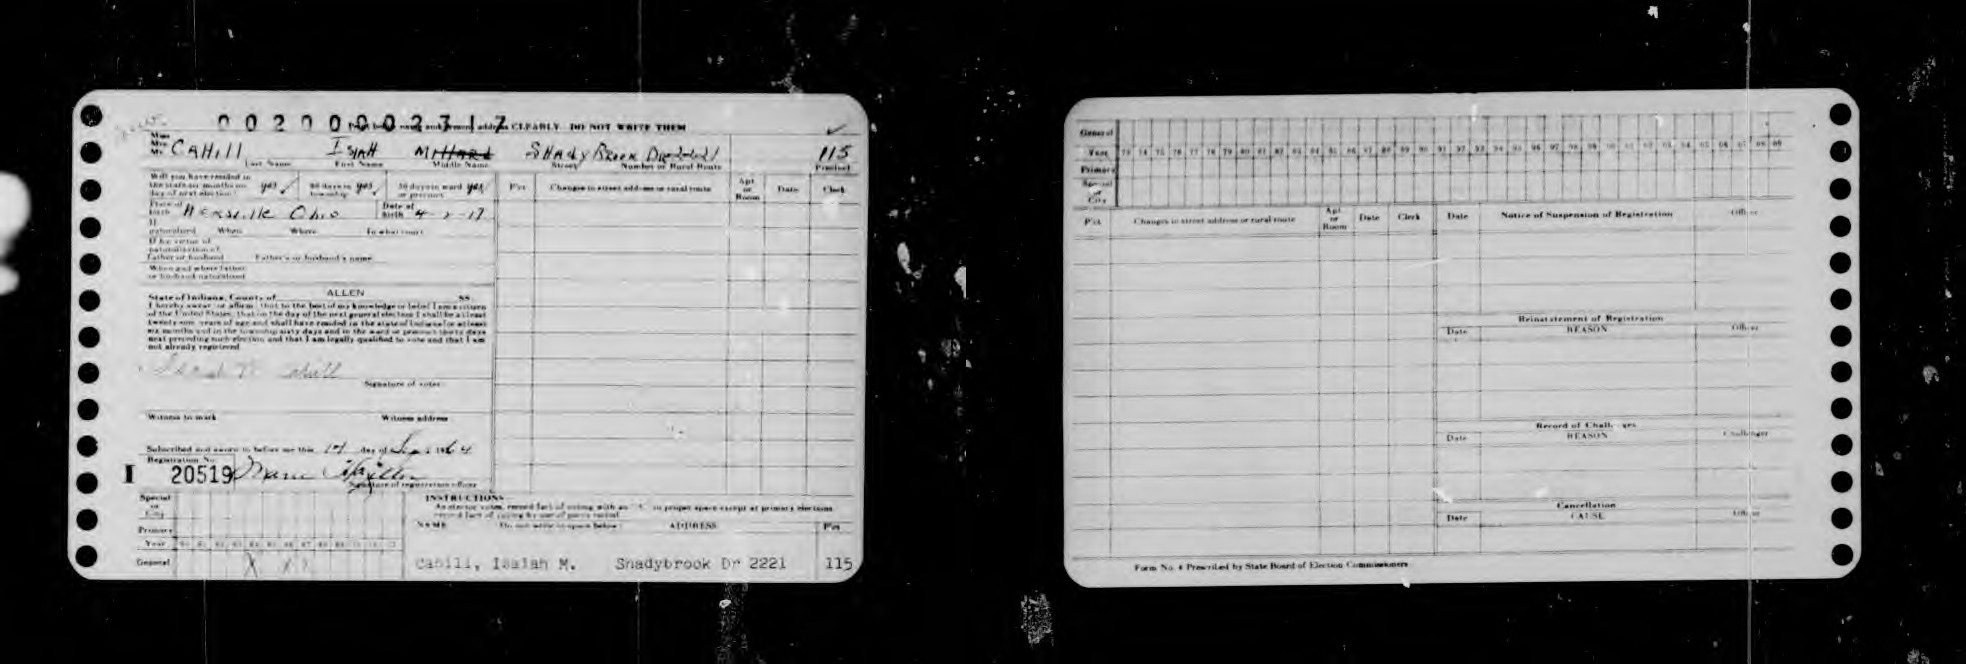 00200002717
Print both name and present address CLEARLY. DO NOT WRITE THEM
Miss
Mrs.
Mr. CAHill ISIAH Millard SHAdy Brook Dr 115
Last Name First Name Middle Name Street Number or Rural Route Precinct
Will you have resided in
the state six months on yes 60 days in yes 30 days in ward yes
day of next election? township or precinct
Pct. Changes in street address or rural route Apt. or Room Date Clerk
Place of
birth Ohio Date of birth 4- -17
If
naturalized When Where In what court
If by virtue of
naturalization of
father or husband Father's or husband's name
When and where father
or husband naturalized
State of Indiana, County of ALLEN SS:
I hereby swear or affirm, that to the best of my knowledge or belief I am a citizen
of the United States, that on the day of the next general election I shall be at least
twenty-one years of age and shall have resided in the state of Indiana for at least
six months and in the township sixty days and in the ward or precinct thirty days
next preceding such election and that I am legally qualified to vote and that I am
not already registered
Signature of voter
Witness to mark Witness address
Subscribed and sworn to before me this 14 day of Sep 1964
Registration No.
I 20519
Signature of registration officer
Special
or
City
Primary
Year
General X X
INSTRUCTIONS
As elector votes, record fact of voting with an "X" in proper space except at primary elections
record fact of voting by use of party initial
NAME Do not write in space below ADDRESS Pct.
Cahill, Isaiah M. Shadybrook Dr 2221 115
General
Year 73 74 75 76 77 78 79 80 81 82 83 84 85 86 87 88 89 90 91 92 93 94 95 96 97 98 99
Primary
Special
or
City
Pct. Changes in street address or rural route Apt. or Room Date Clerk
Date Notice of Suspension of Registration Officer
Reinstatement of Registration
Date REASON Officer
Record of Challenges
Date REASON Challenger
Cancellation
Date CAUSE Officer
Form No. 4 Prescribed by State Board of Election Commissioners